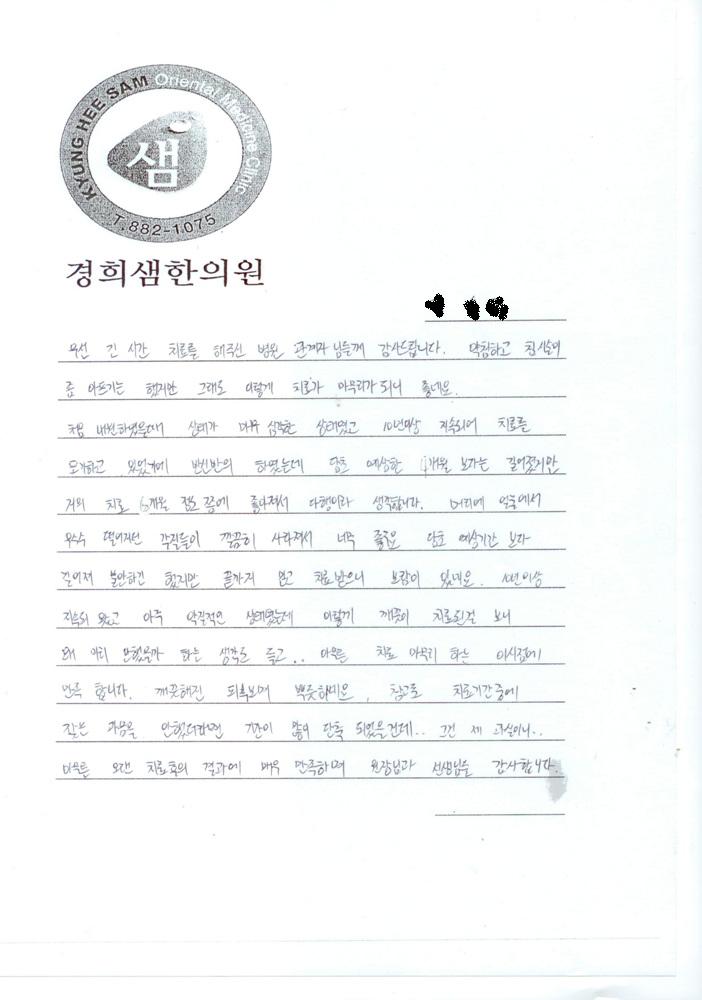 KYUNG HEE SAM Oriental Medicine Clinic
샘
T.882-1075
경희샘한의원
우선 긴 시간 치료를 해주신 병원 관계자 님들께 감사드립니다. 막침하고 침 시술이
좀 아프기는 했지만 그래도 이렇게 치료가 마무리가 되니 좋네요.
처음 내원하였을때 상태가 매우 심각한 상태였고 10년이상 지속되어 치료를
포기하고 있었기에 반신반의 하였는데 당초 예상한 4개월 보다는 길어졌지만
거의 치료 6개월 정도 쯤에 좋아져서 다행이라 생각합니다. 머리에 얼굴에서
우수수 떨어지던 각질들이 깔끔히 사라져서 너무 좋고요 당초 예상기간 보다
길어져 불안하긴 했지만 끝까지 믿고 치료받으니 보람이 있네요. 10년이상
지속되 왔고 아주 악질적인 상태였는데 이렇게 깨끗이 치료된걸 보니
왜 미리 안했을까 하는 생각도 들고.. 아무튼 치료 마무리 하는 이시점에
만족 합니다. 깨끗해진 피부보며 뿌듯하네요. 참고로 치료기간중에
잦은 과음을 안했더라면 기간이 많이 단축 되었을건데.. 그건 제 과실이니..
아무튼 오랜 치료후의 결과에 매우 만족하며 원장님과 선생님들 감사합니다.